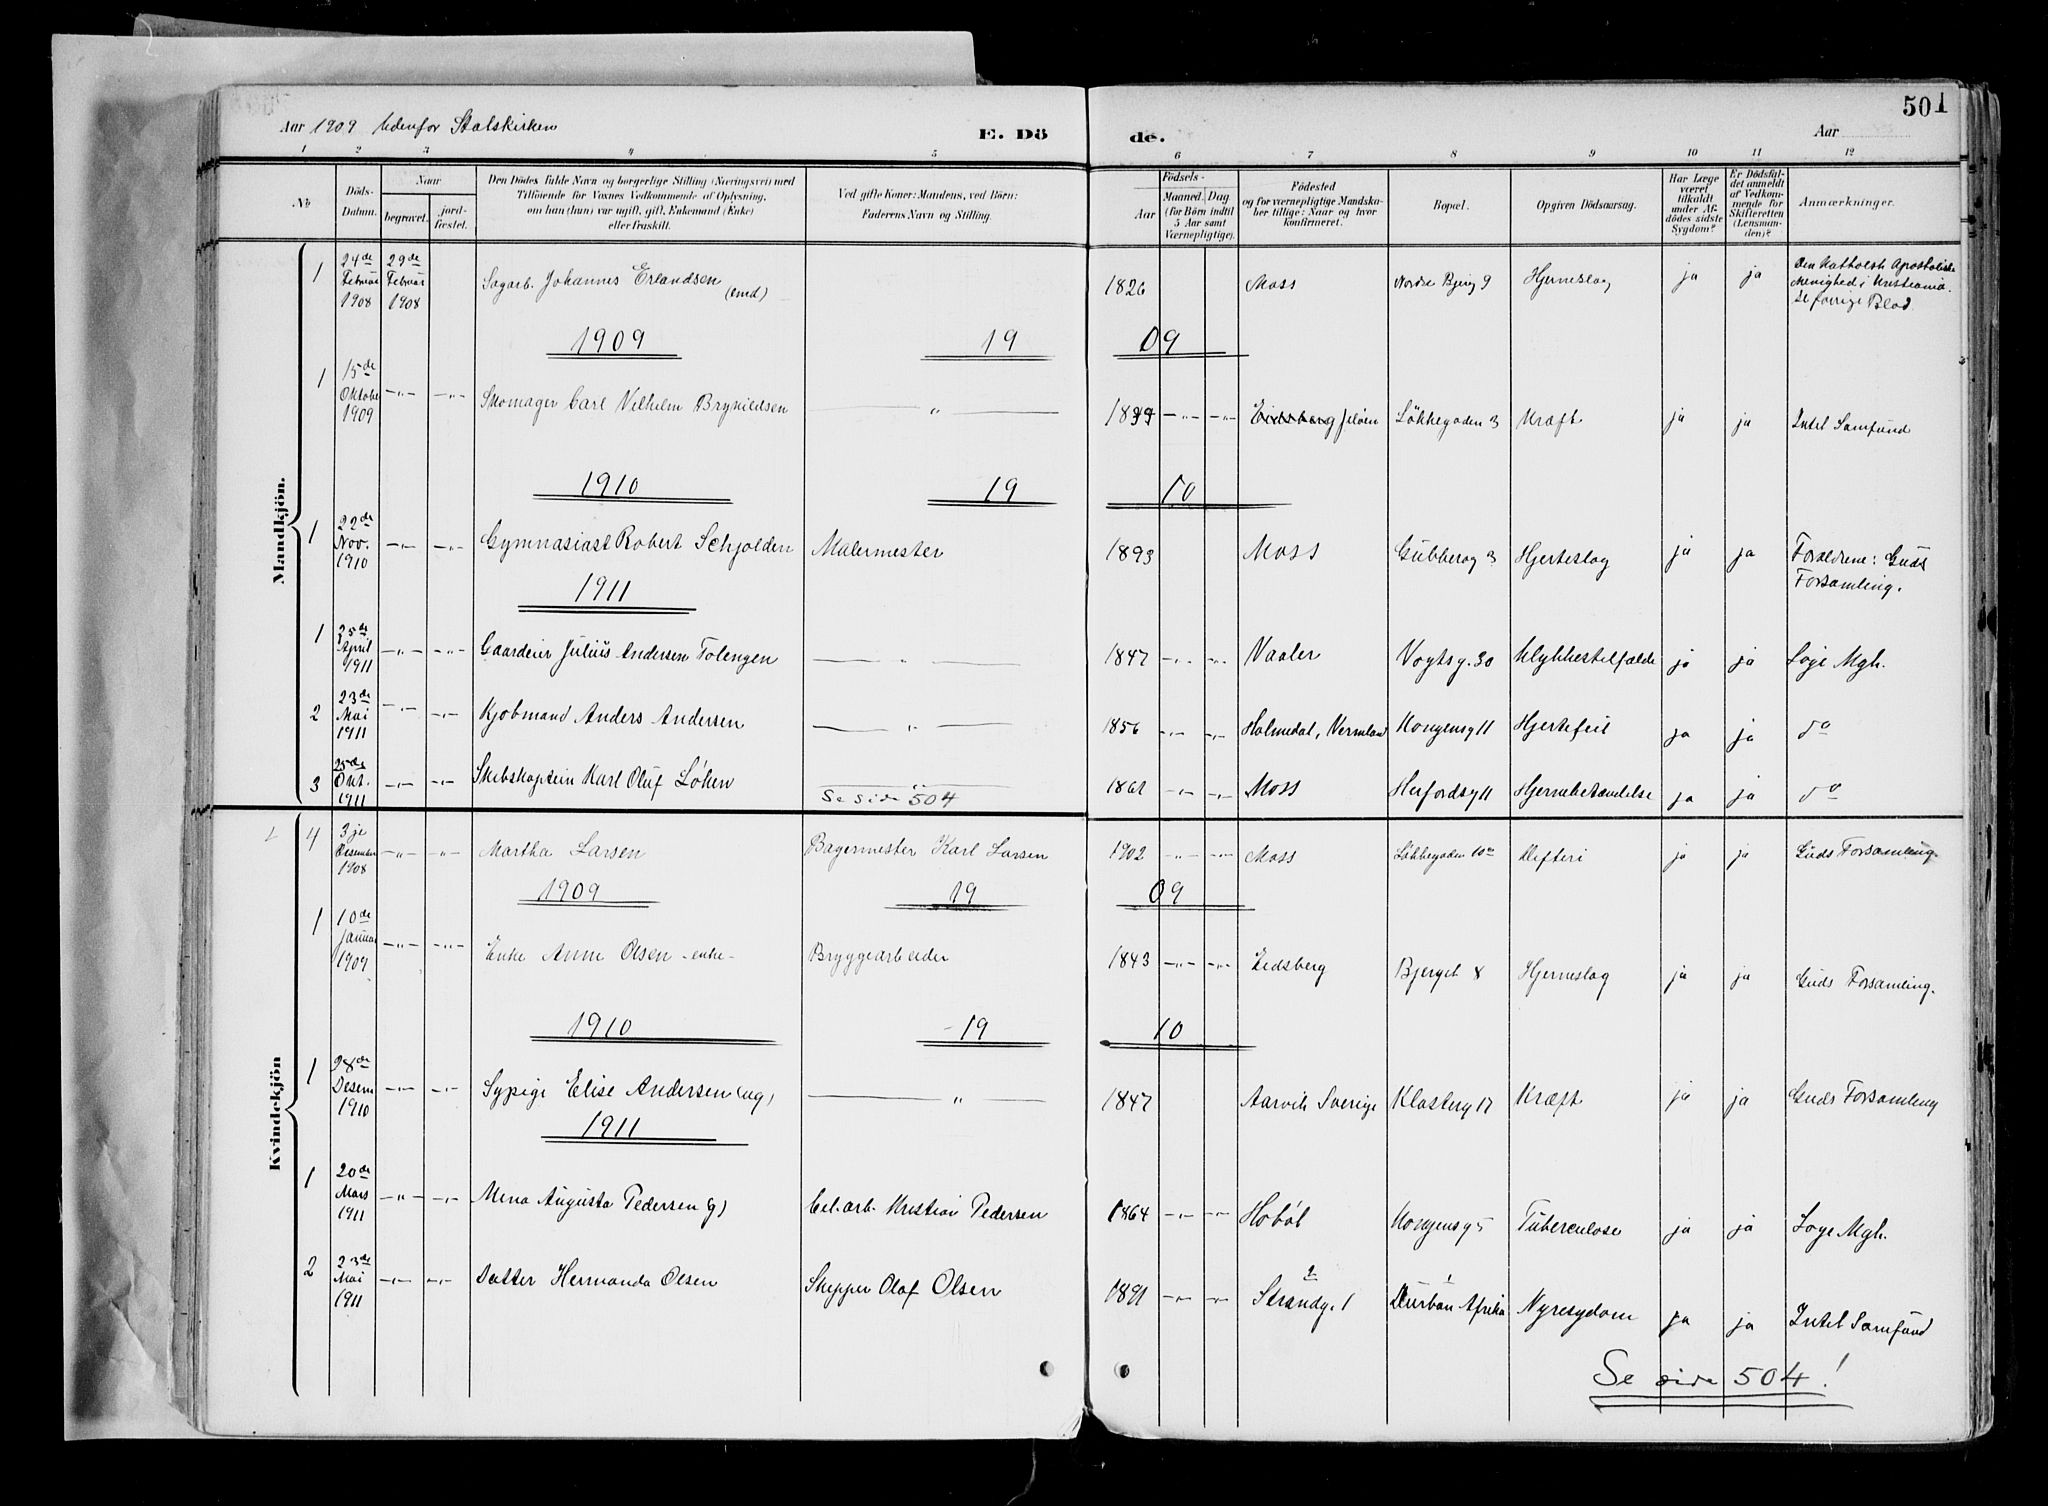 501
Aar 1909 Udenfor Statskirken E. Dö de. Aar
1 2 3 4 5 6 7 8 9 10 11 12
No
Döds-
Datum.
Naar
begravet.
jord-
fæstet.
Den Dödes fulde Navn og borgerlige Stilling (Næringsvei) med
Tilföiende for Voxnes Vedkommende af Oplysning,
om han (hun) var ugift, gift, Enkemand (Enke)
eller fraskilt.
Ved gifte Koner: Mandens, ved Börn:
Faderens Navn og Stilling.
Födsels-
Aar
Maaned. Dag
(for Börn indtil
5 Aar samt
Værnepligtige).
Födested
og for værnepligtige Mandska-
ber tillige: Naar og hvor
konfirmeret.
Bopæl.
Opgiven Dödsaarsag.
Har Læge
været
tilkaldt
under Af-
dödes sidste
Sygdom?
Er Dödsfal-
det anmeldt
af Vedkom-
mende for
Skifteretten
(Lensman-
den)?
Anmærkninger.
Mandkjön.
1 24de Februar 1908 29de Februar 1908 Sagarb. Johannes Erlandsen (emd) 1826 Moss Nordre Bjerg 9 Hjerneslag ja ja Den Katholsk Apostoliske
Menighed i Kristiania.
Se forrige Blad
1909 19 09
1 15de Oktober 1909 -"- -"- Skomager Carl Vilhelm Brynildsen " -"- -"- Eidsberg Jeløen Løkkegaden 3 Kræft ja ja Intet Samfund
1910 19 10
1 22de Nov. 1910 -"- -"- Gymnasiast Robert Schjolden Malermester 1893 Moss Gubberog 3 Hjerteslag ja ja Forældrene: Guds
Forsamling.
1911
1 25de April 1911 -"- -"- Gaardeier Julius Andersen Tolengen " 1847 -"- -"- Vaaler Vogtsg. 30 Ulykkestilfælde ja ja Loge Mgh.
2 23de Mai 1911 -"- -"- Kjøbmand Anders Andersen " 1856 -"- -"- Holmedal, Vermland Kongensg 11 Hjertefeil ja ja do
3 25de Okt. 1911 -"- -"- Skibskaptein Karl Oluf Løken " 1861 -"- -"- Moss Herfordsg 11 Hjernebetændelse ja ja do
Se side 504
Kvindekjön
4 3je Desember 1908 -"- -"- Martha Larsen Bagermester Karl Larsen 1902 -"- -"- Moss Løkkegaden 10a Difteri ja ja Guds Forsamling.
1909 19 09
1 10de Januar 1909 -"- -"- Enke Anne Olsen -enke- Bryggearbeider 1843 -"- -"- Eidsberg Bjerget 8 Hjerneslag ja ja Guds Forsamling.
1910 19 10
1 28de Desem 1910 -"- -"- Sypige Elise Andersen (ug) " 1847 Aarvik Sverige Klosterg 17 Kræft ja ja Guds Forsamling
1911
1 20de Mars 1911 -"- -"- Mina Augusta Pedersen (g) Cel.arb. Kristian Pedersen 1864 -"- -"- Hobøl Kongensg 5 Tuberculose ja ja Loge Mgh.
2 23de Mai 1911 -"- -"- Datter Hermanda Olsen Skipper Olaf Olsen 1891 -"- -"- 2 Strandg. 1 1 Durban Afrika Nyresydom ja ja Intet Samfund
Se side 504!